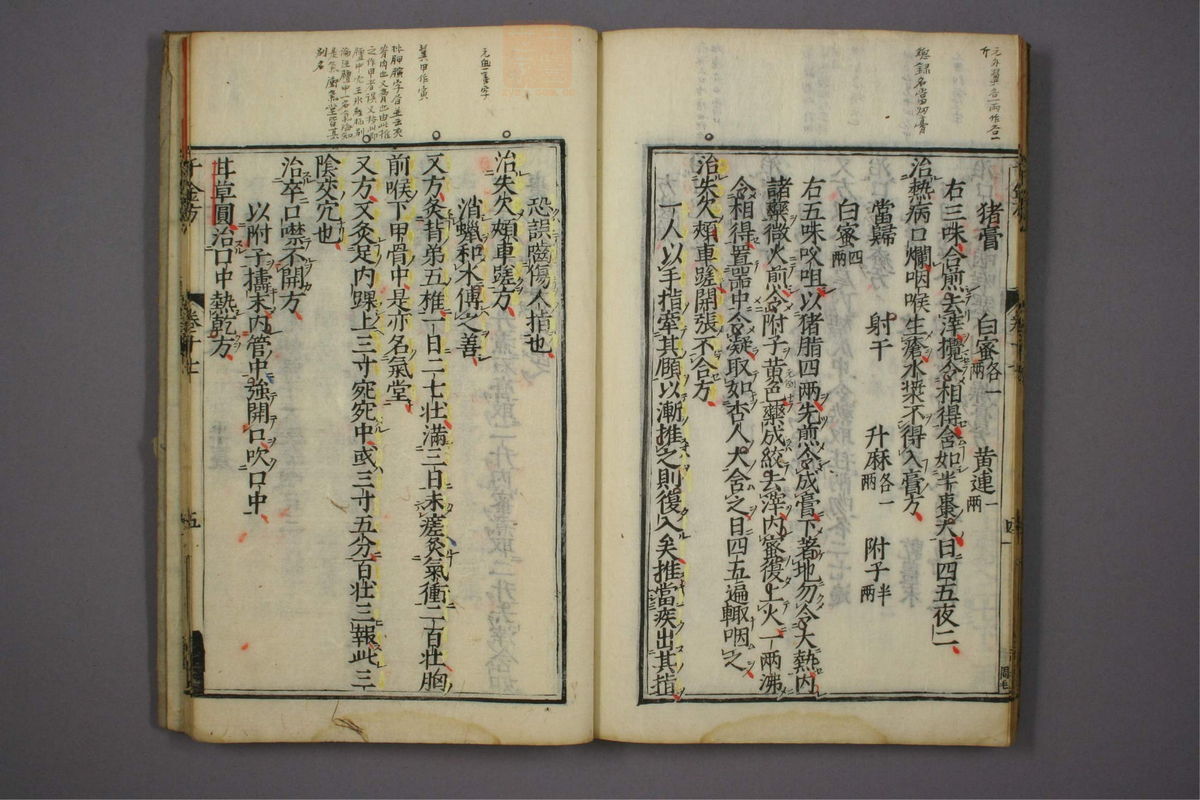 猪膏 白蜜各一兩 黄連一兩
右三味合煎去滓攪令相得含如半棗大日四五夜二
治熱病口爛咽喉生瘡水漿不得入膏方
當歸 射干 升麻各一兩 附子半兩
白蜜四兩
右五味㕮咀以猪脂四兩先煎令成膏下著地勿令大熱内
諸藥微火煎令附子黄色藥成絞去滓内蜜復上火一兩沸
令相得置器中令凝取如杏人大含之日四五遍輙咽之
治失欠頰車蹉開張不合方
一人以手指牽其頤以漸推之則復入矣推當疾出其指
恐誤齧傷人指也
治失欠頰車蹉方
消蠟和水傅之善
又方灸背第五椎一日二七壯滿三日未瘥灸氣衝二百壯胸
前喉下甲骨中是亦名氣堂
又方又灸足内踝上三寸宛宛中或三寸五分百壯三報此三
陰交穴也
治卒口噤不開方
以附子擣末内管中強開口吹口中
甘草圓治口中熱乾方
千金方 卷十七 五
總録名當歸膏
元無一蹉字
翼甲作寅
別名